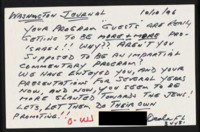 WASHINGTON JOURNAL 10/10/06
YOUR PROGRAM GUESTS ARE REALLY
GETTING TO BE MORE & MORE PRO-
ISRAEL!! WHY?? AREN'T YOU
SUPPOSED TO BE AN IMPARTIAL
COMMENTARY PROGRAM?
WE HAVE ENJOYED YOU, AND YOUR
PRESENTATION FOR SEVERAL YEARS
NOW, AND NOW, YOU SEEM TO BE
MORE SLANTED TOWARDS THE JEWS!
LETS, LET THEM DO THEIR OWN
PROMOTING!!